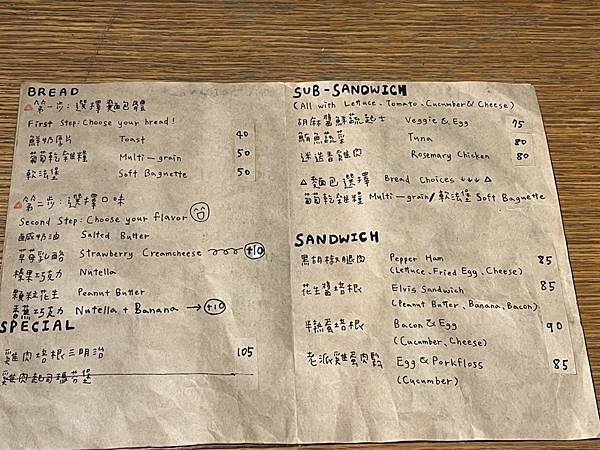 BREAD
△第一步:選擇麵包體
First Step:Choose your bread!
鮮奶厚片 Toast 40
葡萄乾雜糧 Multi—grain 50
軟法堡 Soft Baguette 50
△第二步:選擇口味
Second Step:Choose your flavor
鹹奶油 Salted Butter
草莓乳酪 Strawberry Creamcheese +10
榛果巧克力 Nutella
顆粒花生 Peanut Butter
香蕉巧克力 Nutella + Banana → +10
SPECIAL
雞肉培根三明治 105
雞肉起司瑪芬堡
SUB-SANDWICH
(All with Lettuce、Tomato、Cucumber& Cheese)
胡麻醬鮮蔬起士 Veggie & Egg 75
鮪魚蔬菜 Tuna 80
迷迭香雞肉 Rosemary Chicken 80
△麵包選擇 Bread Choices ↓↓↓△
葡萄乾雜糧 Multi—grain/軟法堡 Soft Baguette
SANDWICH
黑胡椒腿肉 Pepper Ham 85
(Lettuce、Fried Egg、Cheese)
花生醬培根 Elvis Sandwich 85
(Peanut Butter、Banana、Bacon)
半熟蛋培根 Bacon & Egg 90
(Cucumber、Cheese)
老派雞蛋肉鬆 Egg & Porkfloss 85
(Cucumber)